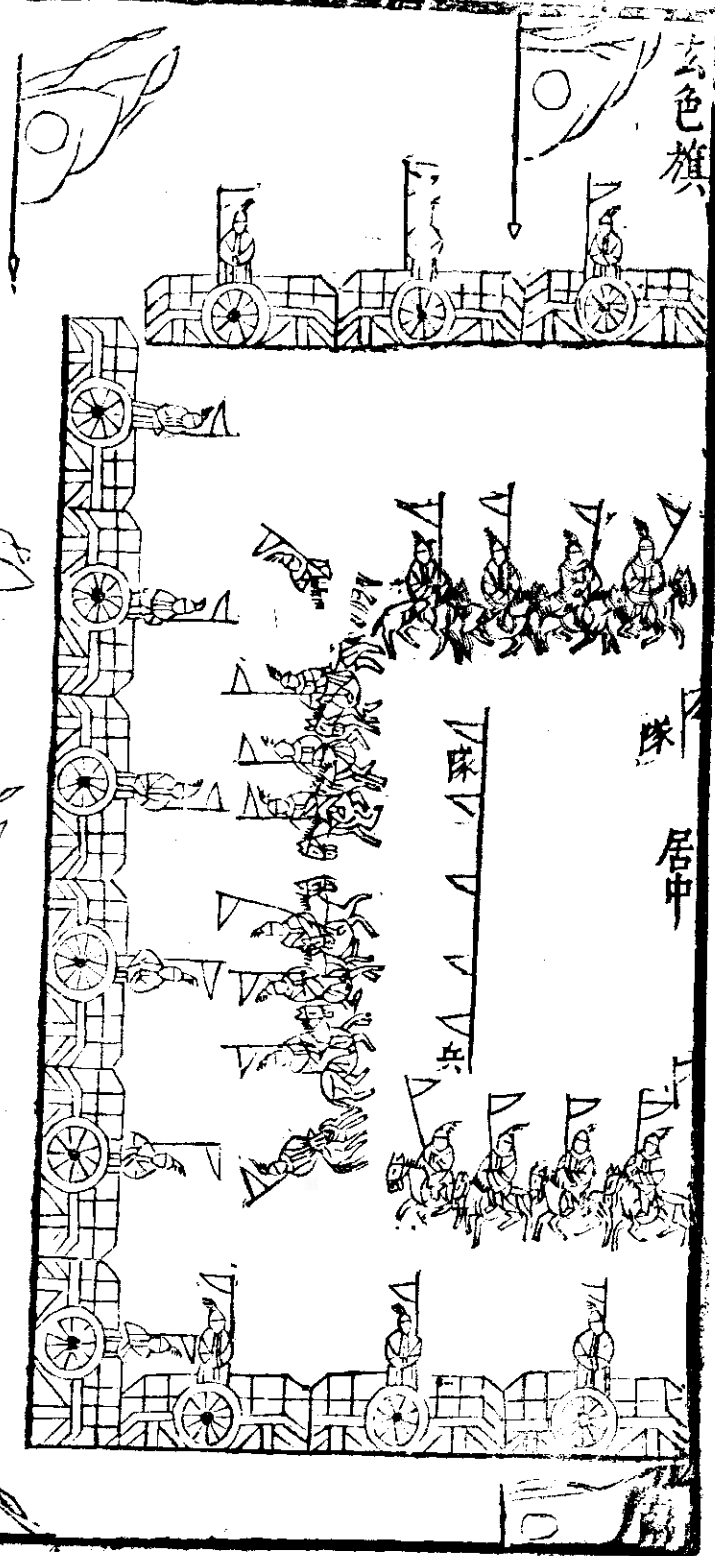 玄色旗
隊
居中
隊
兵